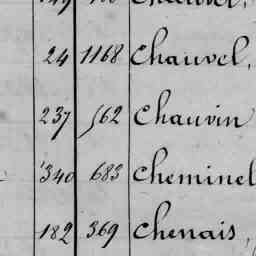 24 1168 Chauvel,
237 562 Chauvin
340 683 Cheminel
182 369 Chenais,